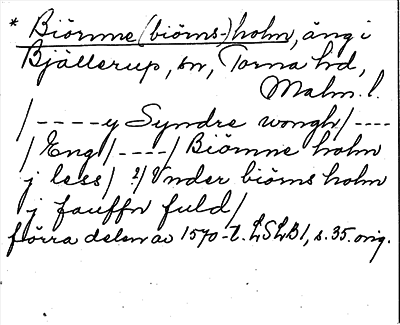 * Biömne (biöms-) holm, äng i
Bjällerup, sn, Torna hd,
Malm. l.
/----y Syndre wongh/----
/ Eng /----/ Biömne holm
j less/ 2/ Vnder biöms holm
j fauffn fuld/
förra delen av 1570-t. LSLB1, s. 35. orig.